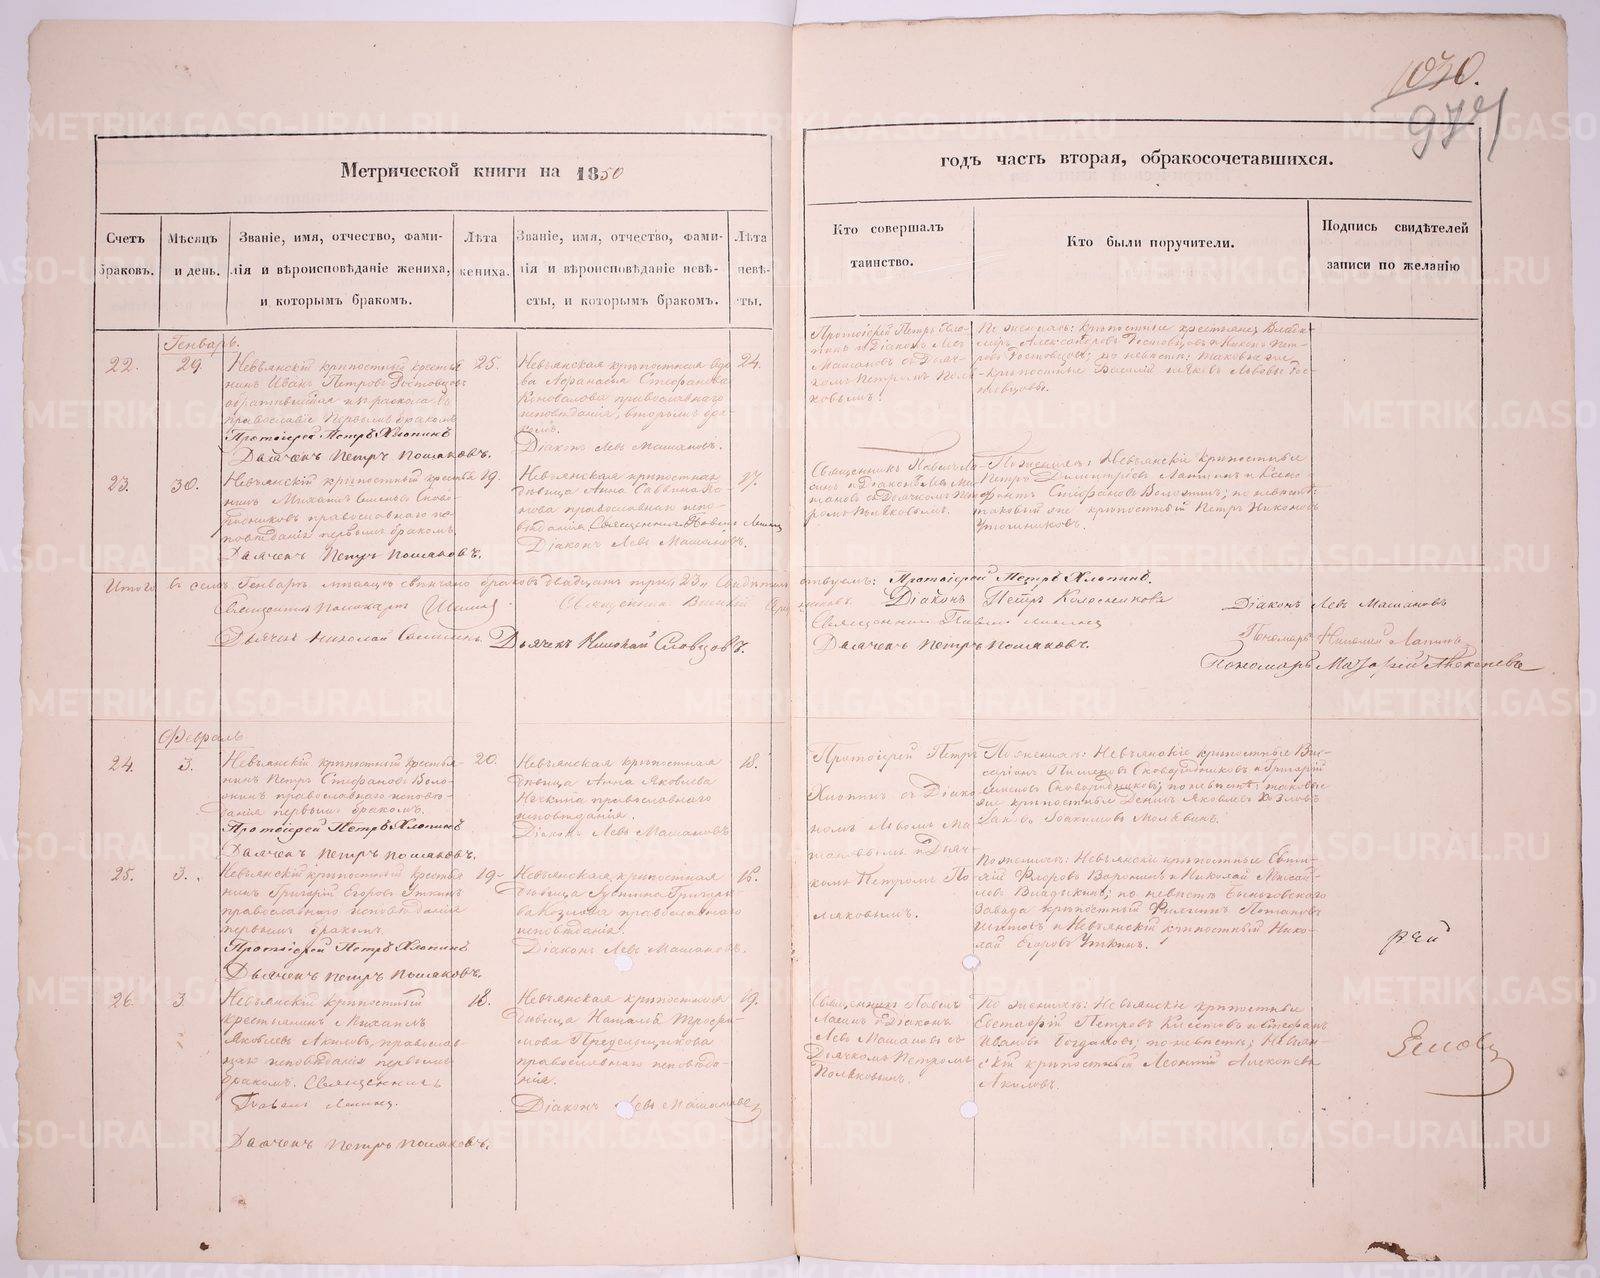 1030.
974
Метрической книги на 1850
годъ часть вторая, обракосочетавшихся.
Счетъ браковъ.
Мѣсяцъ и день.
Званіе, имя, отчество, фами-
лія и вѣроисповѣданіе жениха,
и которымъ бракомъ.
Лѣта
жениха.
Званіе, имя, отчество, фами-
лія и вѣроисповѣданіе невѣ-
сты, и которымъ бракомъ.
Лѣта
невѣ-
сты.
Кто совершалъ
таинство.
Кто были поручители.
Подпись свидѣтелей
записи по желанію
Генварь.
22.
29.
Невьянскій крѣпостный кресть-
нинъ Иванъ Петровъ Ростовцовъ
обратившійся изъ раскола въ
православіе первымъ бракомъ
Протоіерей Петръ Хлопинъ
Дьячекъ Петръ Поляковъ.
25.
Невьянская крѣпостная вдо-
ва Афанасья Стефанова
Коновалова православнаго
исповѣданія, вторымъ бра-
комъ.
Діаконъ Левъ Машановъ.
24.
Протоіерей Петръ Хло-
пинъ и Діаконъ Левъ
Машановъ съ Дьяч-
комъ Петромъ Поля-
ковымъ.
По женихѣ: крѣпостные крестьяне Влади-
міръ Александровъ Ростовцовъ и Никонъ Пет-
ровъ Ростовцовъ; по невѣстѣ: таковые же
крѣпостные Василій и Яковъ Львовы Рос-
товцовы.
23.
30.
Невьянскій крѣпостный кресть-
нинъ Михаилъ Семеновъ Сково-
родниковъ православнаго ис-
повѣданія первымъ бракомъ.
Дьячекъ Петръ Поляковъ.
19.
Невьянская крѣпостная
дѣвица Анна Саввина По-
нова православнаго испо-
вѣданія. Священникъ Павелъ
Діаконъ Левъ Машановъ.
17.
Священникъ Павелъ
и Діаконъ Левъ Ма-
шановъ съ Дьячкомъ Пет-
ромъ Поляковымъ.
По женихѣ: Невьянскій крѣпостные
Петръ Димитріевъ и Ксено-
фонтъ Стефановъ Волокитъ; по невѣстѣ:
таковый же крѣпостный Петръ Никоновъ
Утошниковъ.
Итого въ семъ Генварѣ мѣсяцѣ свѣнчано браковъ двадцать три 23. Свидѣтельствуемъ: Протоіерей Петръ Хлопинъ.
Священникъ
Священникъ
Діаконъ Петръ Колосниковъ
Діаконъ Левъ Машановъ
Священникъ Павелъ
Дьячекъ Николай
Дьячекъ Николай Словцовъ.
Дьячекъ Петръ Поляковъ.
Пономарь
Пономарь
Февраль
24.
3.
Невьянскій крѣпостный крестья-
нинъ Петръ Стефановъ Воло-
кинъ православнаго исповѣ-
данія первымъ бракомъ.
Протоіерей Петръ Хлопинъ
Дьячекъ Петръ Поляковъ.
20.
Невьянская крѣпостная
дѣвица Анна Яковлева
православнаго
исповѣданія.
Діаконъ Левъ Машановъ
18.
Протоіерей Петръ
Хлопинъ съ Діако-
номъ Львомъ Ма-
шановымъ и Дьяч-
комъ Петромъ По-
ляковымъ.
По женихѣ: Невьянскіе крѣпостные Вис-
саріонъ Пименовъ Сковородниковъ и Григорій
Семеновъ Сковородниковъ; по невѣстѣ: таковые
же крѣпостные Денисъ Яковлевъ Козловъ
25.
3.
Невьянскій крѣпостный кресть-
нинъ Григорій Егоровъ Уткинъ
православнаго исповѣданія
первымъ бракомъ.
Протоіерей Петръ Хлопинъ
Дьячекъ Петръ Поляковъ.
19
Невьянская крѣпостная
дѣвица Григорь-
ва Козлова православнаго
исповѣданія.
Діаконъ Левъ Машановъ.
16.
По женихѣ: Невьянскіе крѣпостные Евти-
хій Флоровъ Воронинъ и Николай Михай-
ловъ Владыкинъ; по невѣстѣ Быньговскаго
Завода крѣпостный Филиппъ Потаповъ
и Невьянскій крѣпостный Нико-
лай Егоровъ Уткинъ.
рей
26.
3
Невьянскій крѣпостный
крестьянинъ Михаилъ
Яковлевъ Акиловъ, православ-
наго исповѣданія первымъ
бракомъ. Священникъ
Павелъ
Дьячекъ Петръ Поляковъ.
18.
Невьянская крѣпостная
дѣвица Наталья Трофи-
мова
православнаго исповѣда-
нія.
Діаконъ Левъ Машановъ
19.
Священникъ Павелъ
и Діаконъ
Левъ Машановъ съ
Дьячкомъ Петромъ
Поляковымъ.
По женихѣ: Невьянскіе крѣпостные
Евстафій Петровъ и Стефанъ
Ивановъ Богдановъ; по невѣстѣ; Невьян-
скій крѣпостный Леонтій Алексѣевъ
Акиловъ.